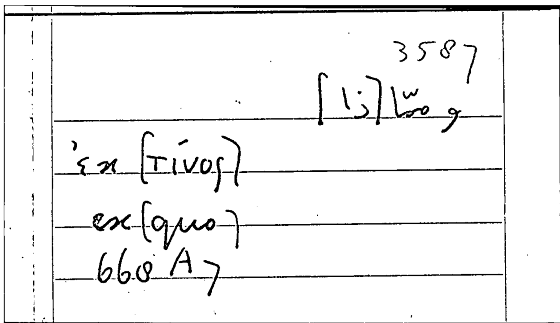 3587
ἐκ [τίνος]
ex [quo]
668 A 7